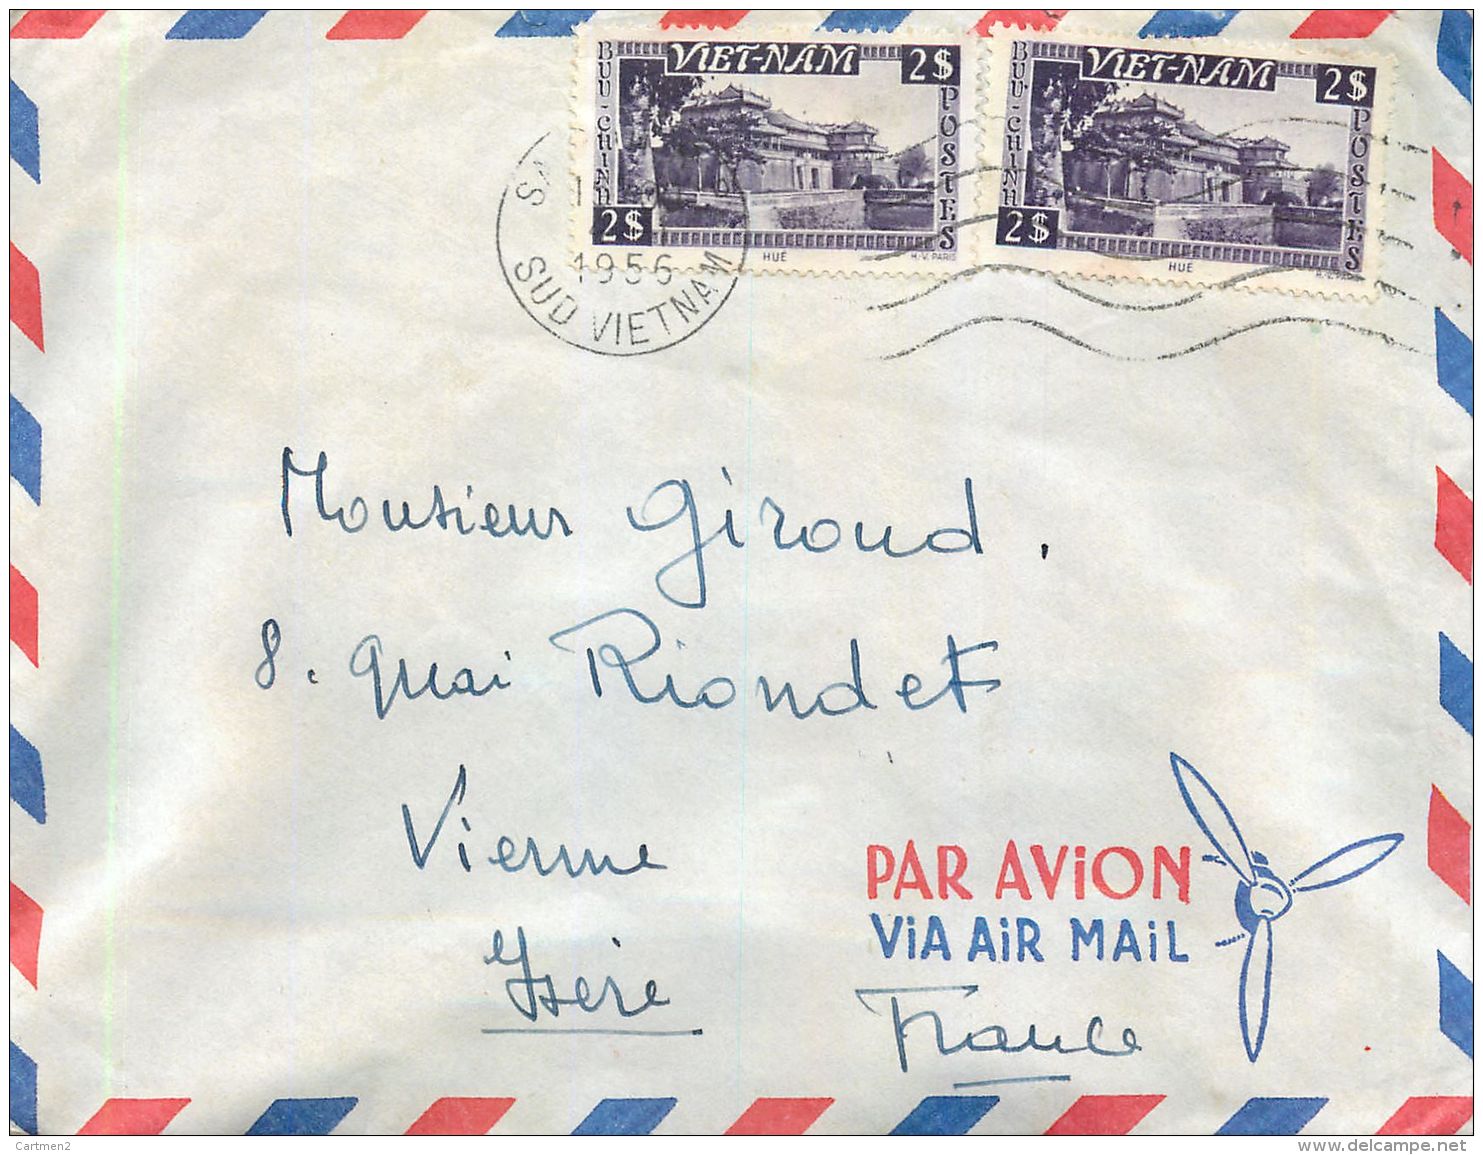 BUU-CHINH
VIET-NAM
2$
POSTES
2$
HUÊ
H.-V. PARIS
BUU-CHINH
VIET-NAM
2$
POSTES
2$
HUÊ
1956
SUD VIETNAM
Monsieur Giroud.
8. Quai Riondet
Vienne
Isère
PAR AViON
ViA AiR MAiL
France
Cartmen2
delcampe.net